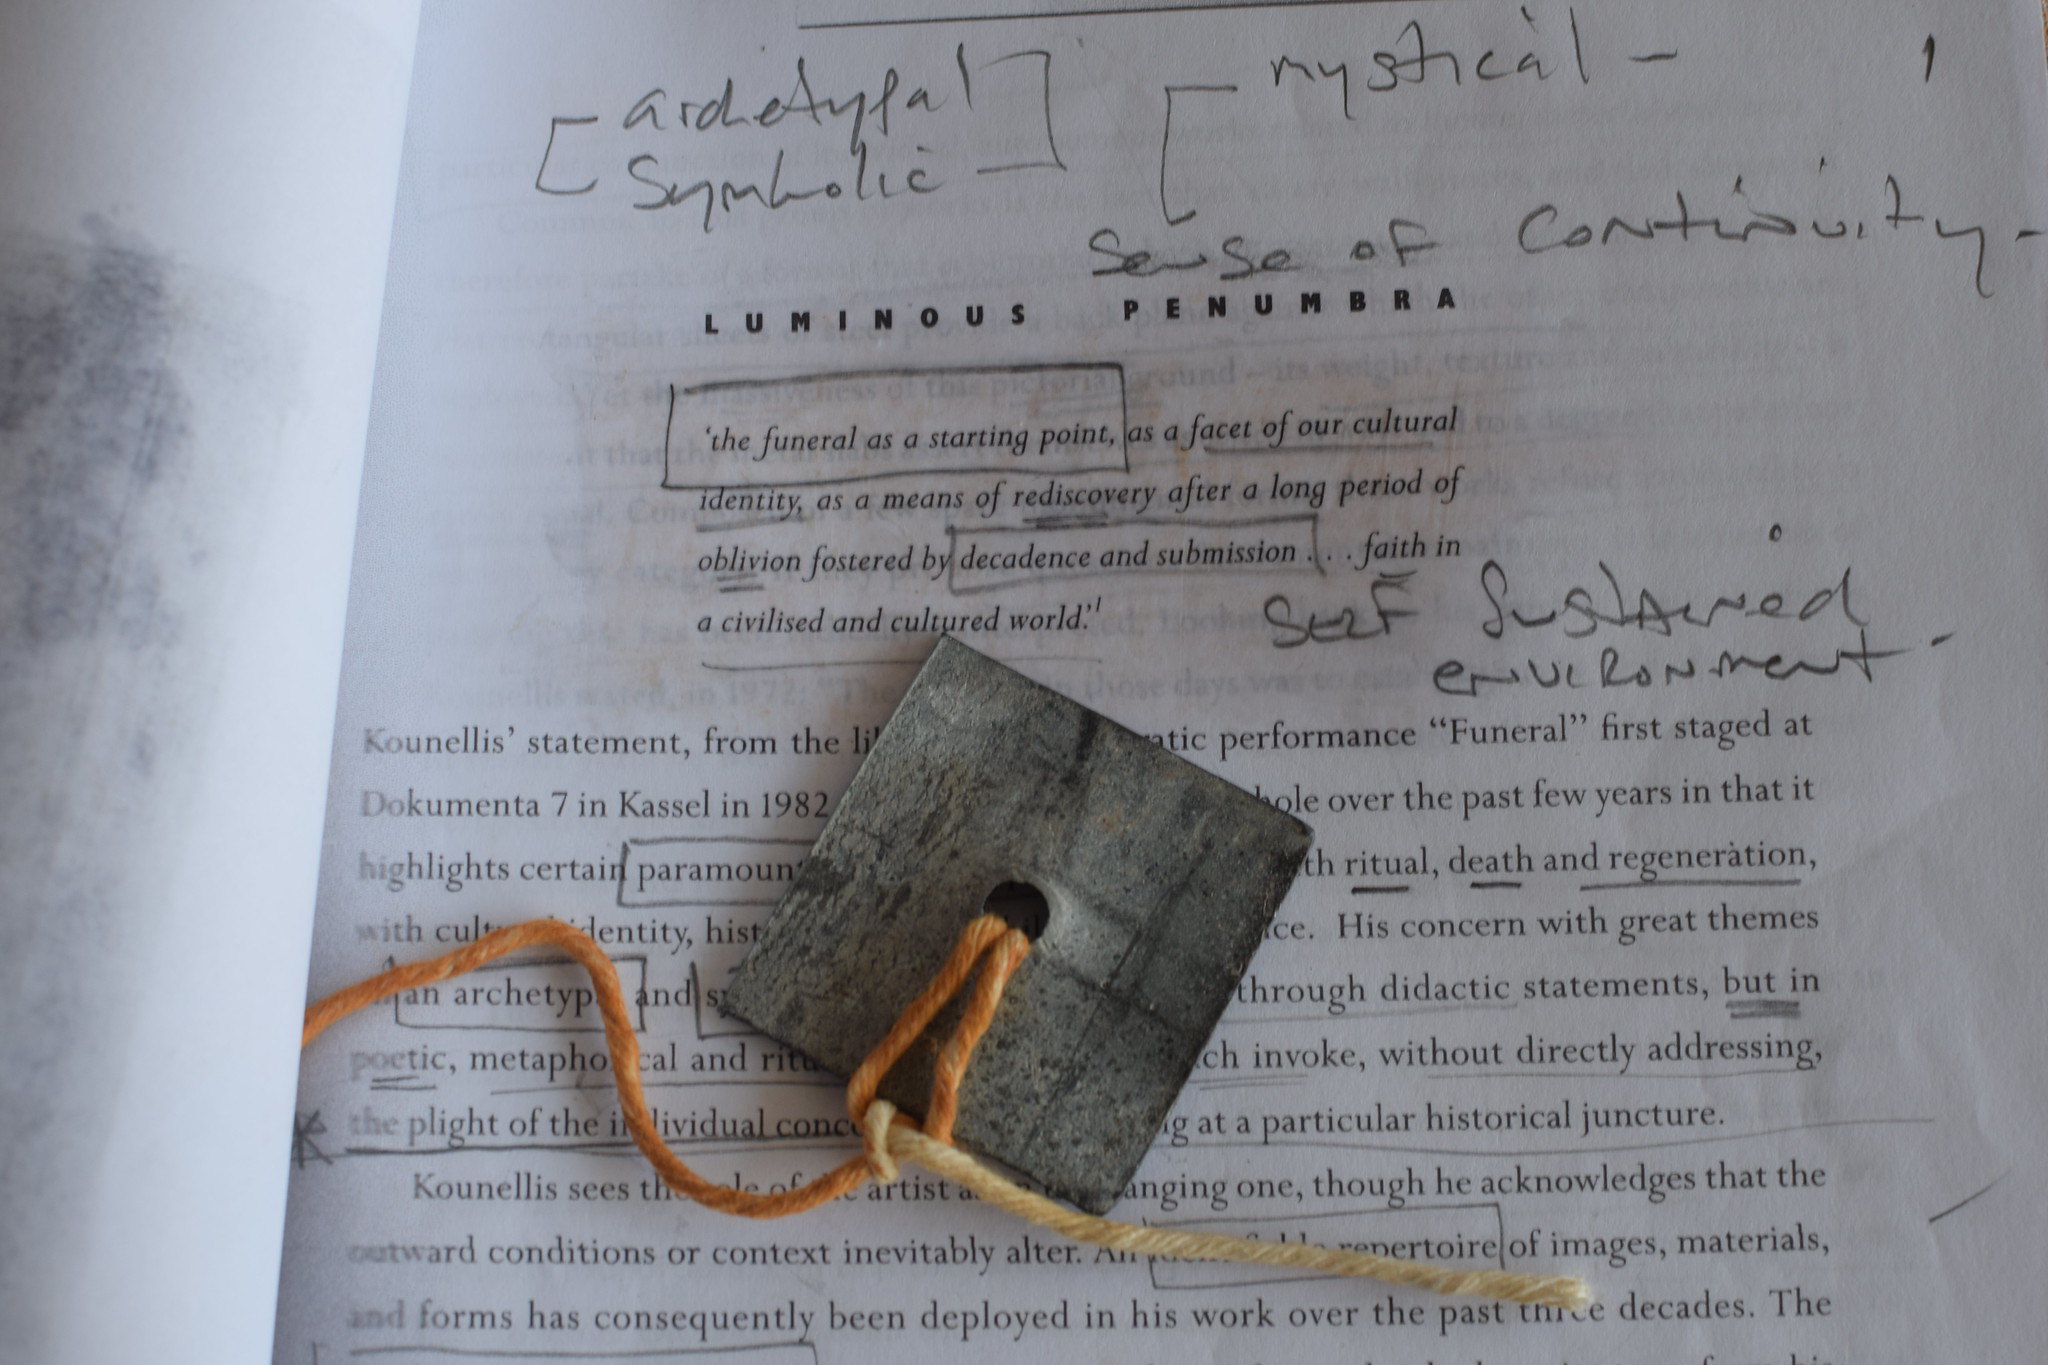 archetypal
mystical -
Symbolic -
sense of continuity -
LUMINOUS PENUMBRA
'the funeral as a starting point, as a facet of our cultural
identity, as a means of rediscovery after a long period of
oblivion fostered by decadence and submission . . . faith in
a civilised and cultured world.'1
SELF Sustained
environment -
Kounellis' statement, from the performance "Funeral" first staged at
Dokumenta 7 in Kassel in 1982 over the past few years in that it
highlights certain ritual, death and regeneration,
with identity, His concern with great themes
an and through didactic statements, but in
poetic, metaphorical and invoke, without directly addressing,
the plight of the individual at a particular historical juncture.
Kounellis sees the of artist one, though he acknowledges that the
outward conditions or context inevitably alter. repertoire of images, materials,
and forms has consequently been deployed in his work over the past three decades. The